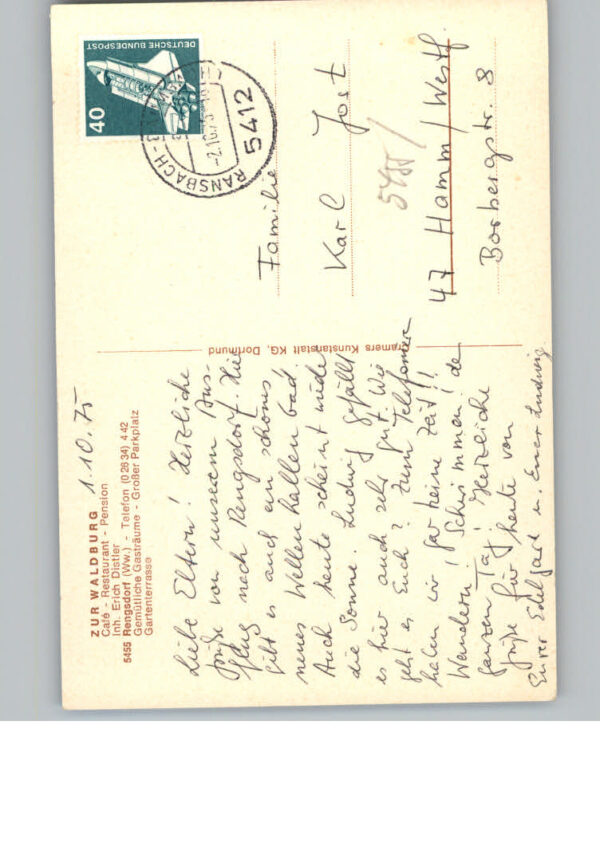 ZUR WALDBURG
Café - Restaurant - Pension
Inh. Erich Distler
5455 Rengsdorf (Ww.) - Telefon (0 26 34) 4 42
Gemütliche Gasträume - Großer Parkplatz
Gartenterrasse
1.10.75
Liebe Eltern! Herzliche
Grüße von unserem Aus-
flug nach Rengsdorf. Hier
gibt es auch ein schönes
neues Wellenhallenbad.
Auch heute scheint wieder
die Sonne. Ludwig gefällt
es hier auch sehr gut. Wie
geht es Euch? Zum Telefonieren
haben wir gar keine Zeit!!
Wandern! Schwimmen! de
ganzen Tag! Herzliche
Grüße für heute von
Eurer Edelgard u. Euer Ludwig
Kramers Kunstanstalt KG, Dortmund
DEUTSCHE BUNDESPOST
40
RANSBACH-
-2.10.75
5412
Familie
Karl Jost
5455/
47 Hamm/Westf.
Borbergstr. 8